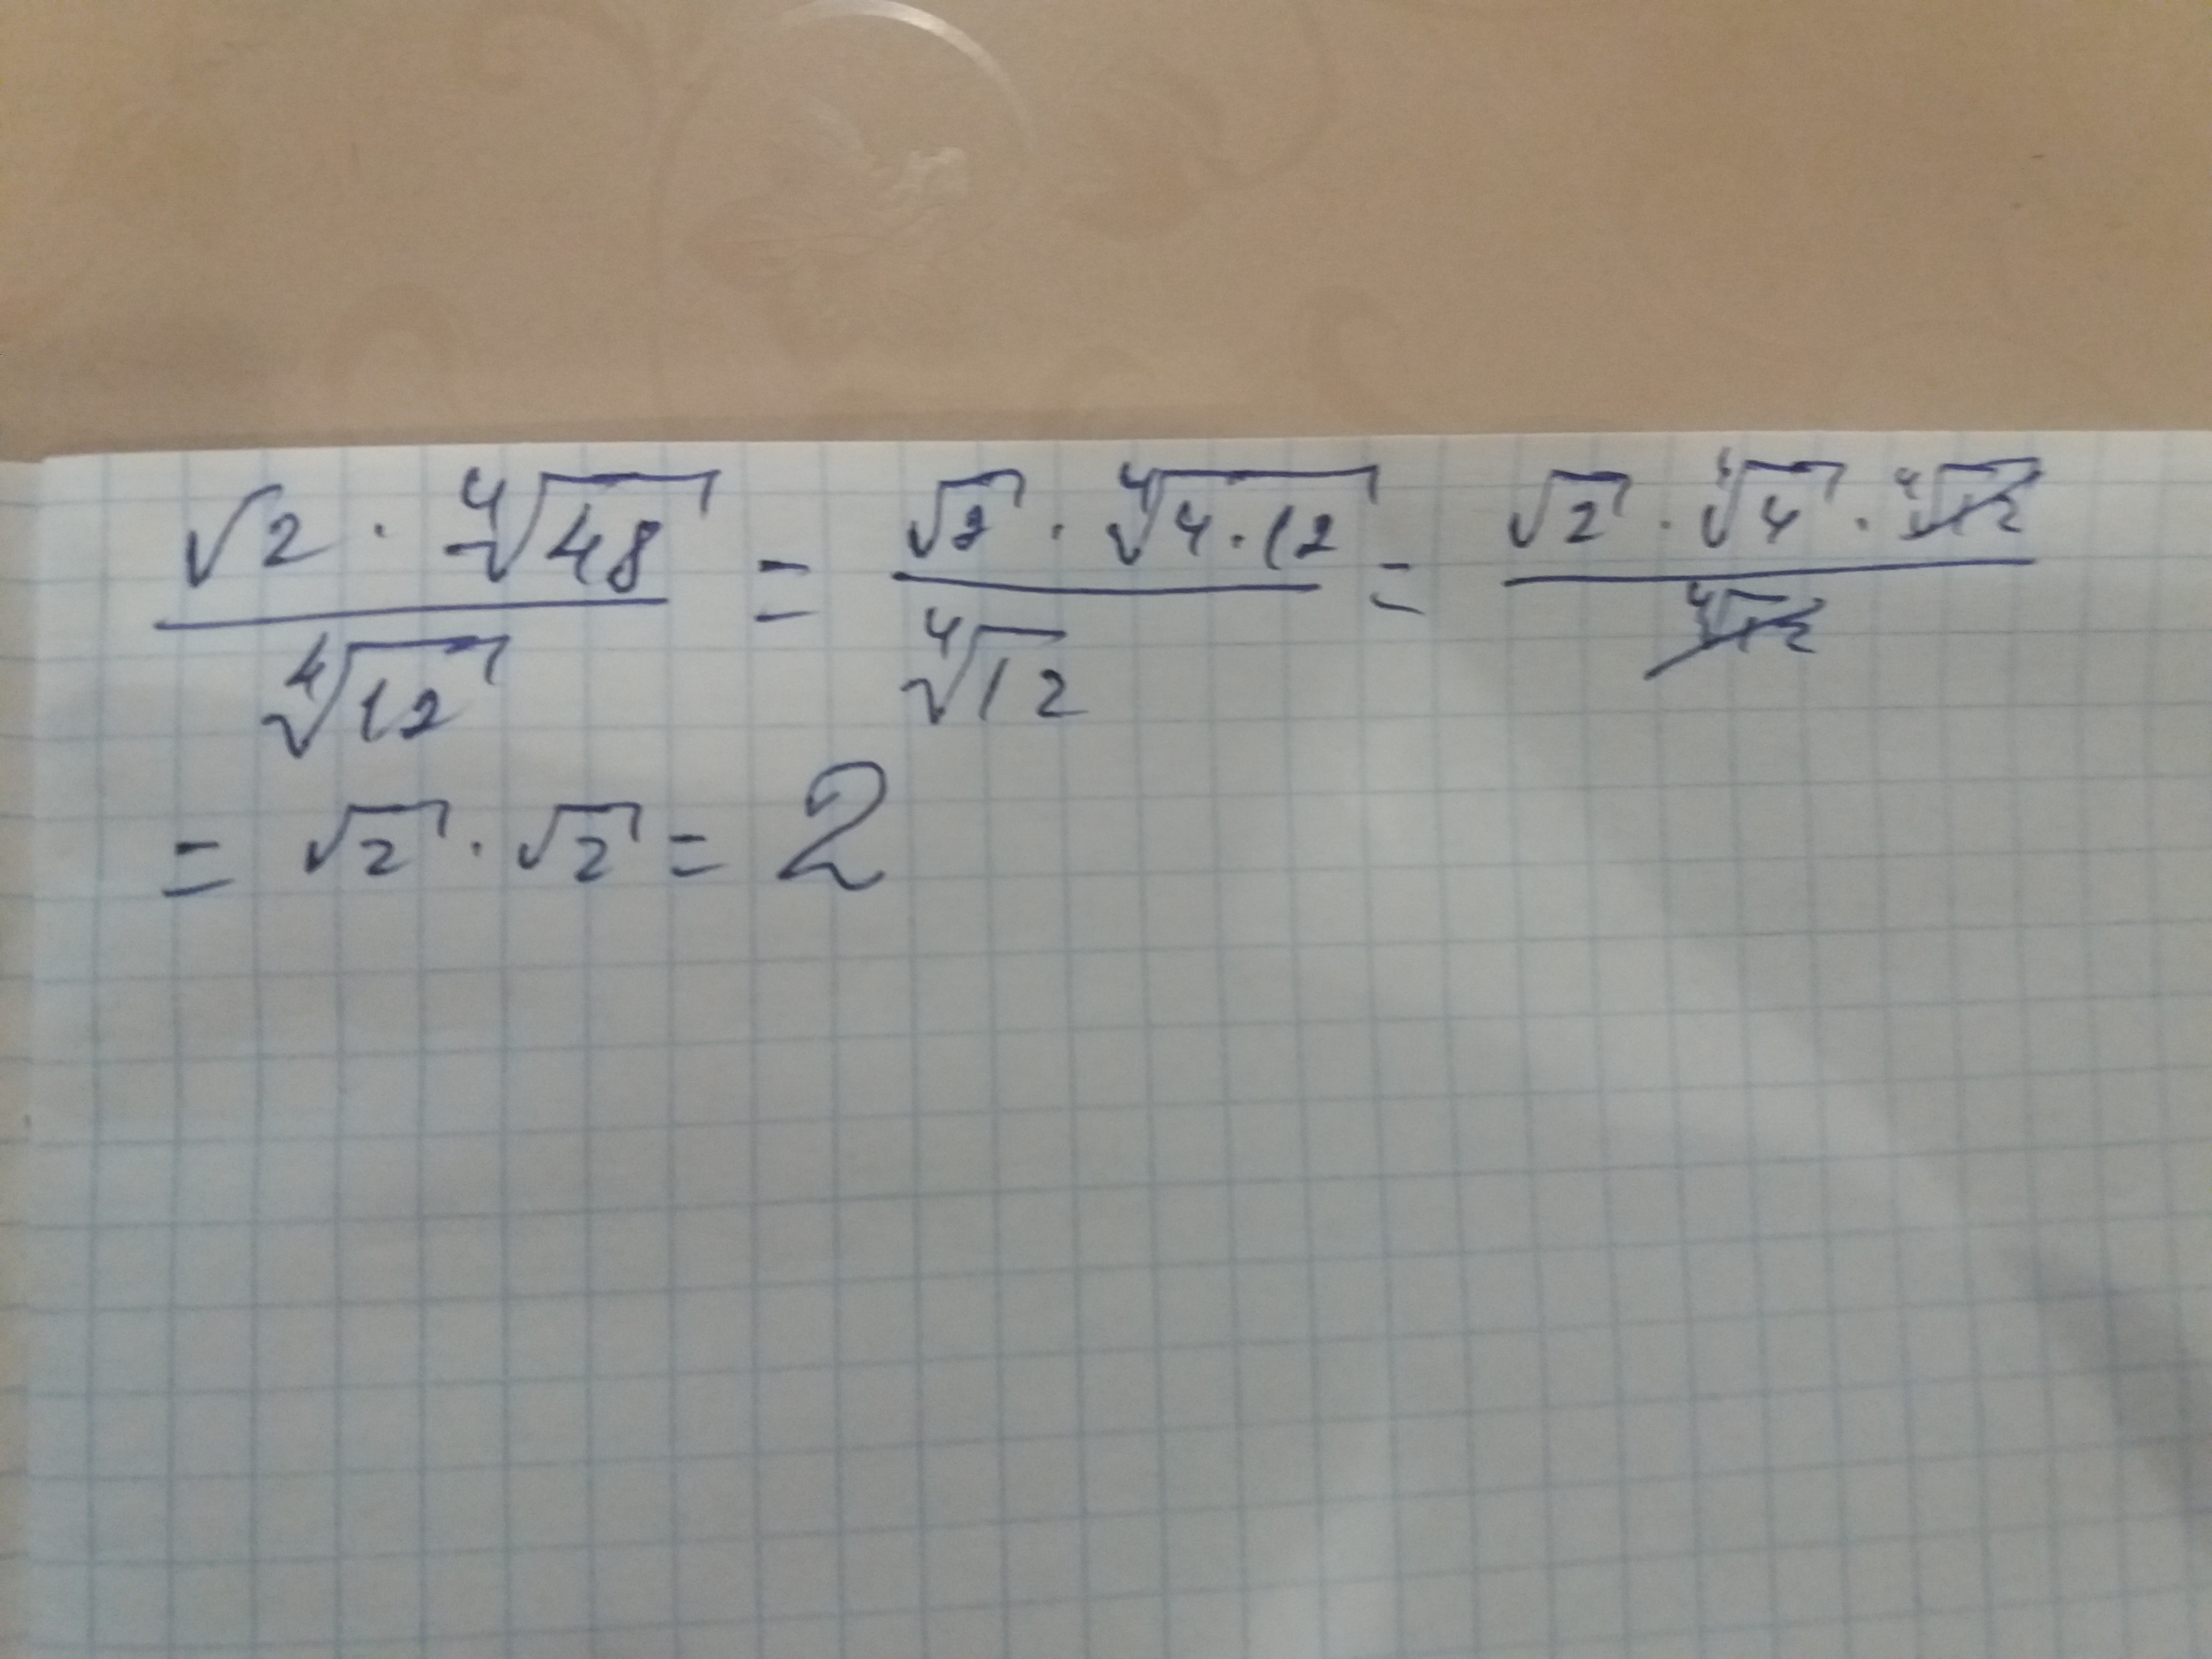 (√2 · ⁴√48) / ⁴√12 = (√2 · ⁴√(4·12)) / ⁴√12 = (√2 · ⁴√4 · ⁴√12) / ⁴√12
= √2 · √2 = 2